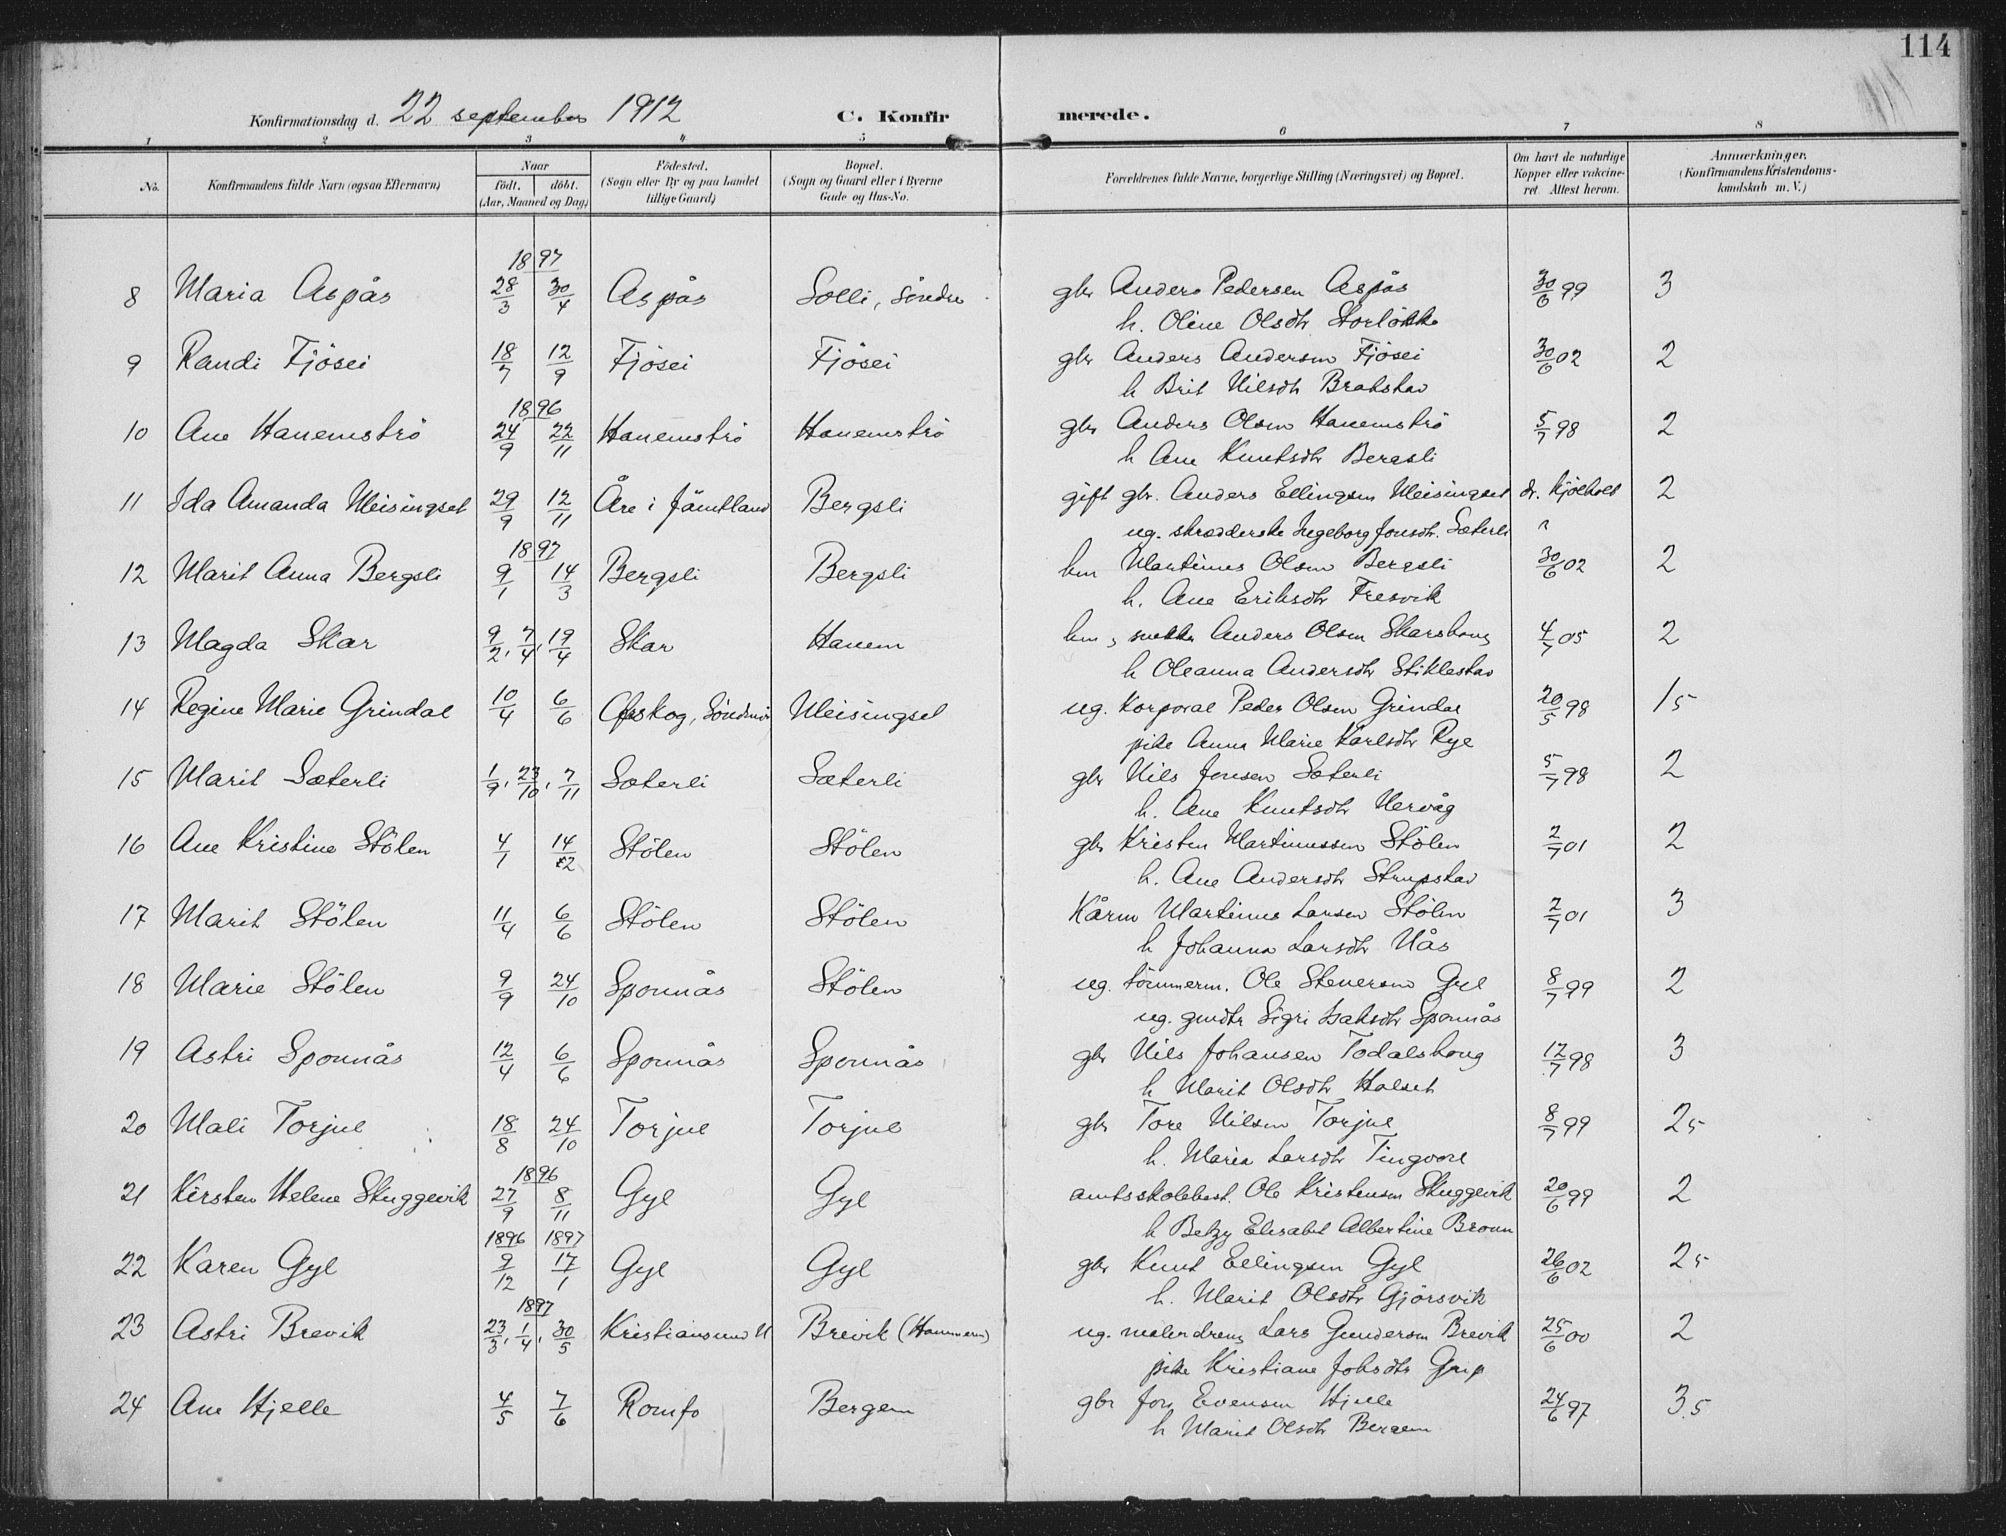 114
Konfirmationsdag d. 22 september 1912 C. Konfirmerede.
1 2 3 4 5 6 7 8
No. Konfirmandens fulde Navn (ogsaa Efternavn) Naar födt. döbt. (Aar, Maaned og Dag) Födested. (Sogn eller By og paa Landet tillige Gaard) Bopæl. (Sogn og Gaard eller i Byerne Gade og Hus-No. Forældrenes fulde Navne, borgerlige Stilling (Næringsvei) og Bopæl. Om havt de naturlige Kopper eller vakcineret. Attest herom. Anmærkninger. (Konfirmandens Kristendomskundskab m. V.)
1897
8 Maria Aspås 28/3 30/4 Aspås Solli, Söndre gbr Anders Pedersen Aspås 30/6 99 3
h. Oline Olsdtr Storlökk
9 Randi Fjösei 18/7 12/9 Fjösei Fjösei gbr Anders Andersen Fjösei 30/6 02 2
h Brit Nilsdtr Brakstad
1896
10 Ane Hanemströ 24/9 22/11 Hanemströ Hanemströ gbr Anders Olsen Hanemströ 5/7 98 2
h Ane Knutsdtr Bergsli
11 Ida Amanda Meisingset 29/9 12/11 Åre i Jämtland Bergsli gift gbr. Anders Ellingsen Meisingset dr. Kjölholt 2
ug. skrædderske Ingeborg Jonsdtr. Sæterli
1897
12 Marit Anna Bergsli 9/1 14/3 Bergsli Bergsli hm Martinus Olsen Bergsli 30/6 02 2
h. Ane Eriksdtr Fresvik
13 Magda Skar 9/2, 7/4, 19/4 Skar Hanem hm, Anders Olsen Skarshaug 4/7 05 2
h Oleanna Andersdtr Stiklestad
14 Regine Marie Grindal 10/4 6/6 Örskog, Söndmör Meisingset ug. korporal Peder Olsen Grindal 20/5 98 15
pike Anna Marie Karlsdtr Rye
15 Marit Sæterli 1/9, 23/10, 7/11 Sæterli Sæterli gbr Nils Jonsen Sæterli 5/7 98 2
h. Ane Knutsdtr Nervåg
16 Ane Kristine Stölen 4/1 14/2 Stölen Stölen gbr Kristen Martinussen Stölen 2/7 01 2
h. Ane Andersdtr Strupstad
17 Marit Stölen 11/4 6/6 Stölen Stölen Kårm Martinus Larsen Stölen 2/7 01 3
h Johanna Larsdtr Nås
18 Marie Stölen 9/9 24/10 Sponnås Stölen ug. tömmerm. Ole Stenersen Gyl 8/7 99 2
ug. gmdtr Sigri Isaksdtr Sponnås
19 Astri Sponnås 12/4 6/6 Sponnås Sponnås gbr Nils Johansen Todalshaug 12/7 98 3
h Marit Olsdtr Halset
20 Mali Torjul 18/8 24/10 Torjul Torjul gbr Tore Nilsen Torjul 8/7 99 25
h. Maria Larsdtr Tingvold
1896
21 Kirsten Helene Skuggevik 27/9 8/11 Gyl Gyl amtsskolebest. Ole Kristensen Skuggevik 20/6 99 2
h Betzy Elisabet Albertine Broun
1896 1897
22 Karen Gyl 9/12 17/1 Gyl Gyl gbr Knut Ellingsen Gyl 26/6 02 25
h. Marit Olsdtr Gjörsvik
1897
23 Astri Brevik 23/3, 1/4, 30/5 Kristiansund N Brevik (Hammern) ug. malerdreng Lars Gundersen Brevik 25/6 00 2
pike Kristiane Johsdtr Grip
24 Ane Hjelle 4/5 7/6 Romfo Bergem gbr Jon Evensen Hjelle 24/6 97 3.5
h Marit Olsdtr Bergem